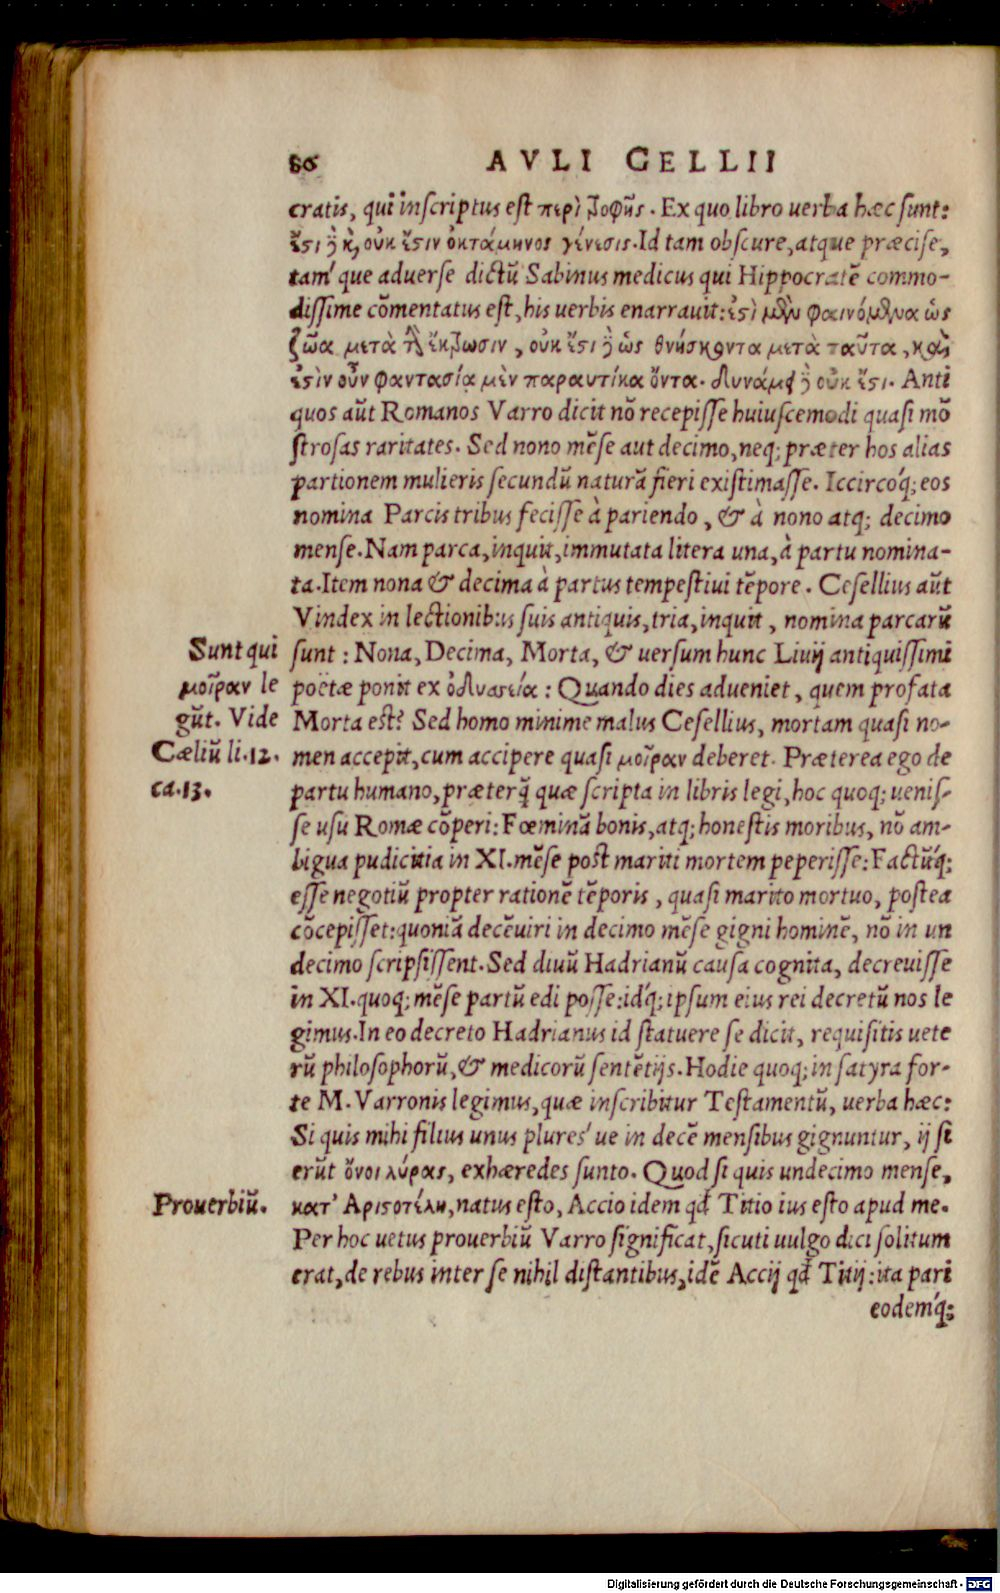 86 AVLI GELLII
cratis, qui inscriptus est περὶ τροφῆς. Ex quo libro uerba hæc sunt:
ἔστι δὲ καὶ οὐκ ἔστιν ὀκτάμηνος γένεσις. Id tam obscure, atque præcise,
tam' que aduerse dictũ Sabinus medicus qui Hippocratẽ commo-
dissime cõmentatus est, his uerbis enarrauit: ἐστὶ μὲν φαινόμενα ὡς
ζῶα μετὰ τὴν ἔκτρωσιν, οὐκ ἔστι δὲ ὡς θνήσκοντα μετὰ ταῦτα, καὶ
ἐστὶν οὖν φαντασία μὲν παραυτίκα ὄντα. δυνάμει δὲ οὐκ ἔστι. Anti
quos aũt Romanos Varro dicit nõ recepisse huiuscemodi quasi mõ
strosas raritates. Sed nono mẽse aut decimo, neq; præter hos alias
partionem mulieris secundũ naturã fieri existimasse. Iccircoq́; eos
nomina Parcis tribus fecisse à pariendo, & à nono atq; decimo
mense. Nam parca, inquit, immutata litera una, à partu nomina-
ta. Item nona & decima à partus tempestiui tẽpore. Cesellius aũt
Vindex in lectionibus suis antiquis, tria, inquit, nomina parcarũ
sunt: Nona, Decima, Morta, & uersum hunc Liuij antiquissimi
poëtæ ponit ex ὀδυσσεία: Quando dies adueniet, quem profata
Morta est? Sed homo minime malus Cesellius, mortam quasi no-
men accepit, cum accipere quasi μοῖραν deberet. Præterea ego de
partu humano, præterq̃ quæ scripta in libris legi, hoc quoq; uenis-
se usu Romæ cõperi: Fœminã bonis, atq; honestis moribus, nõ am-
bigua pudicitia in XI. mẽse post mariti mortem peperisse: Factũq́;
esse negotiũ propter rationẽ tẽporis, quasi marito mortuo, postea
cõcepisset: quoniã decẽuiri in decimo mẽse gigni hominẽ, nõ in un
decimo scripsissent. Sed diuũ Hadrianũ causa cognita, decreuisse
in XI. quoq; mẽse partũ edi posse: idq́; ipsum eius rei decretũ nos le
gimus. In eo decreto Hadrianus id statuere se dicit, requisitis uete
rũ philosophorũ, & medicorũ sentẽtijs. Hodie quoq; in satyra for-
te M. Varronis legimus, quæ inscribitur Testamentũ, uerba hæc:
Si quis mihi filius unus plures' ue in decẽ mensibus gignuntur, ij si
erũt ὄνοι λύρας, exhæredes sunto. Quod si quis undecimo mense,
κατ' Αριστοτέλη, natus esto, Accio idem qđ Titio ius esto apud me.
Per hoc uetus prouerbiũ Varro significat, sicuti uulgo dici solitum
erat, de rebus inter se nihil distantibus, idẽ Accij qđ Titij: ita pari
eodemq́;
Sunt qui
μοῖραν le
gũt. Vide
Cæliũ li. 12.
ca. 13.
Prouerbiũ.
Digitalisierung gefördert durch die Deutsche Forschungsgemeinschaft - DFG